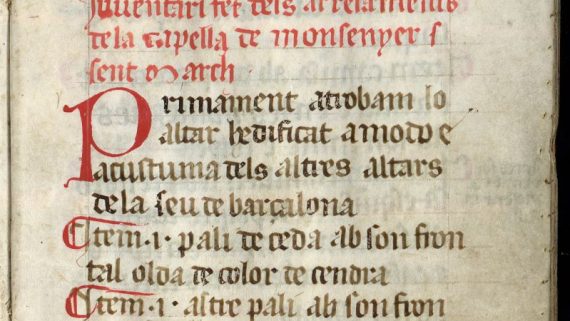 Jnventari fet dels arreaments
de la capella de monsenyer s
sent March
Primament atrobam lo
altar hedificat a modo e
acustuma dels altres altars
de la seu de barçalona
Item .i. pali de ceda ab son fron
tal olda de color de cendra
Item .i. altre pali ab son fron